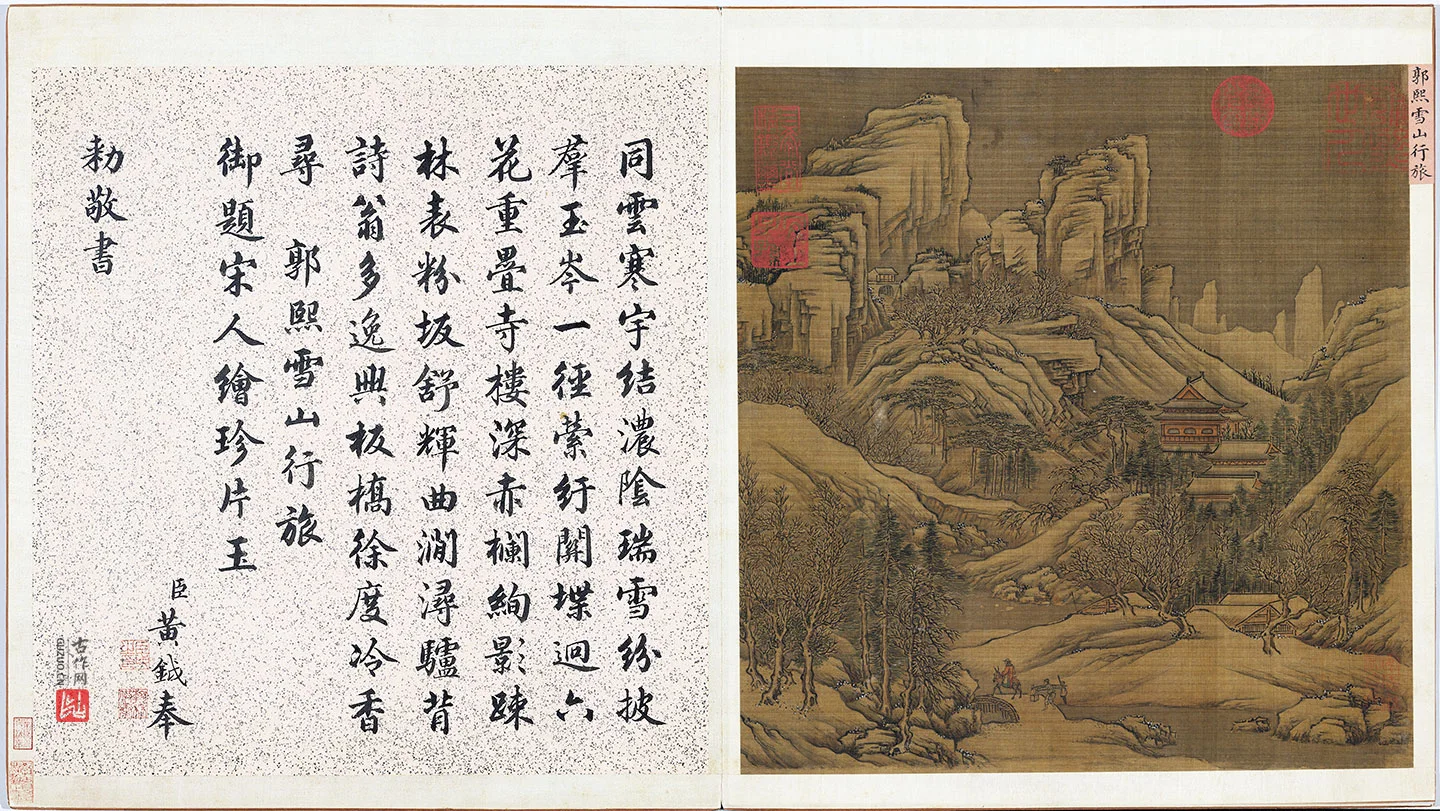 郭熙雪山行旅
同雲寒宇結濃陰瑞雪紛披
羣玉岑一徑縈紆關堞逈六
花重疊寺樓深赤欄絢影踈
林表粉坂舒輝曲澗潯驢背
詩翁多逸興板橋徐度冷香
尋 郭熙雪山行旅
御題宋人繪珍片玉
臣黃鉞奉
勑敬書
古作网
GUZUO.CN